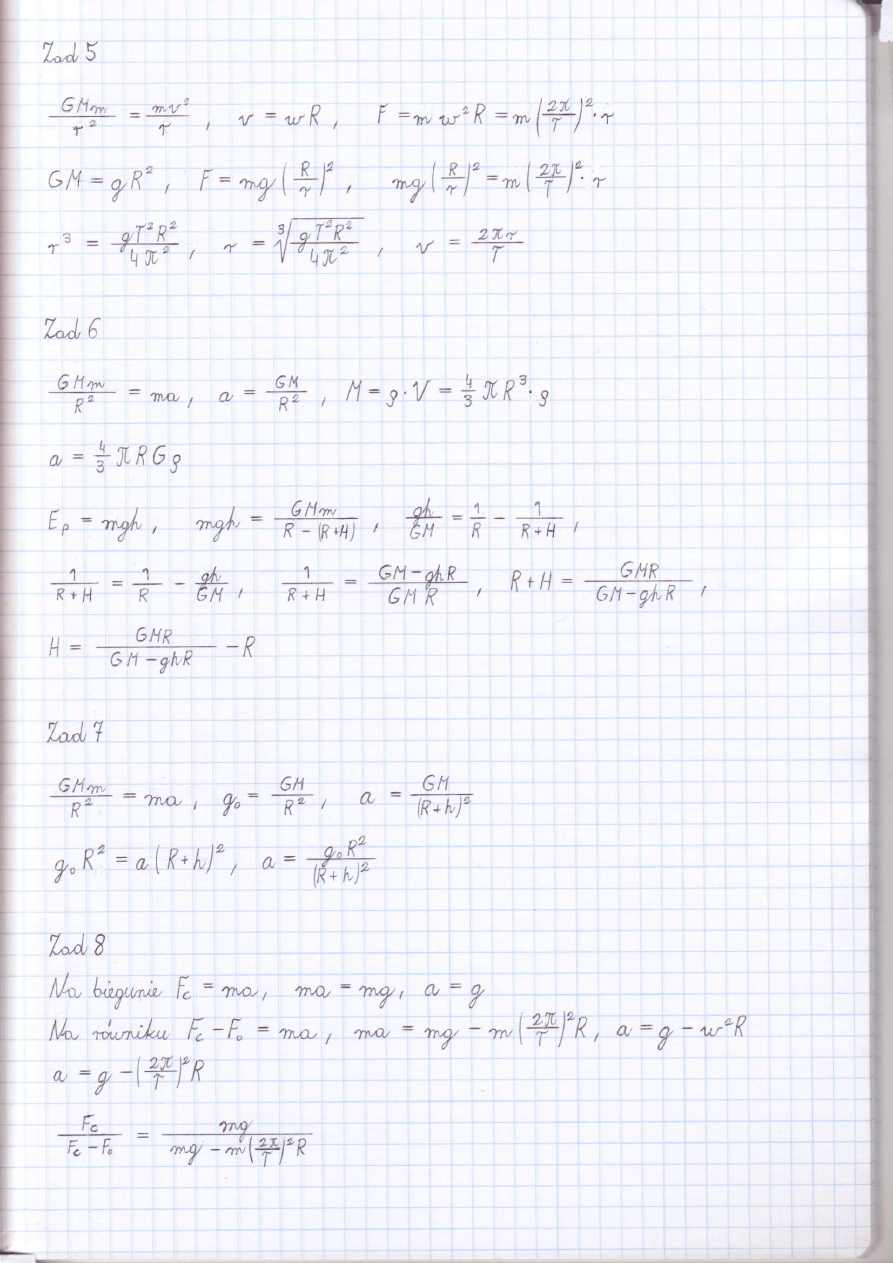 Zad 5
GMm/r² = mv²/r , v = wR , F = m w²R = m(2π/T)²·r
GM = gR² , F = mg(R/r)² , mg(R/r)² = m(2π/T)²·r
r³ = gT²R²/4π² , r = ∛(gT²R²/4π²) , v = 2πr/T
Zad 6
GMm/R² = ma , a = GM/R² , M = ρ·V = 4/3 πR³·ρ
a = 4/3 πRGρ
Eₚ = mgh , mgh = GMm/(R-(R+H)) , gh/GM = 1/R - 1/(R+H) ,
1/(R+H) = 1/R - gh/GM , 1/(R+H) = (GM-ghR)/(GM R) , R+H = GMR/(GM-ghR) ,
H = GMR/(GM-ghR) - R
Zad 7
GMm/R² = ma , g₀ = GM/R² , a = GM/(R+h)²
g₀R² = a(R+h)² , a = g₀R²/(R+h)²
Zad 8
Na biegunie Fc = ma , ma = mg , a = g
Na równiku Fc - F₀ = ma , ma = mg - m(2π/T)²R , a = g - w²R
a = g - (2π/T)²R
Fc/(Fc - F₀) = mg/(mg - m(2π/T)²R)